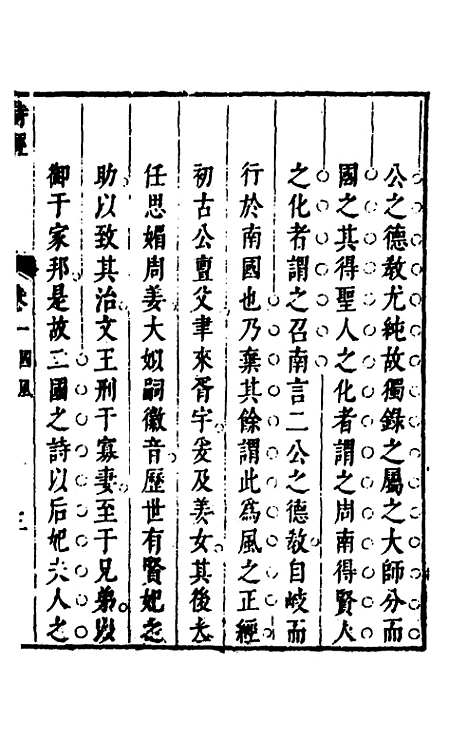 公之德教尤純故獨錄之屬之大師分而
國之其得聖人之化者謂之周南得賢人
之化者謂之召南言二公之德教自岐而
行於南國也乃棄其餘謂此為風之正經
初古公亶父聿來胥宇爰及姜女其後太
任思媚周姜大姒嗣徽音歷世有賢妃之
助以致其治文王刑于寡妻至于兄弟以
御于家邦是故二國之詩以后妃夫人之
詩經 卷一 國風 三